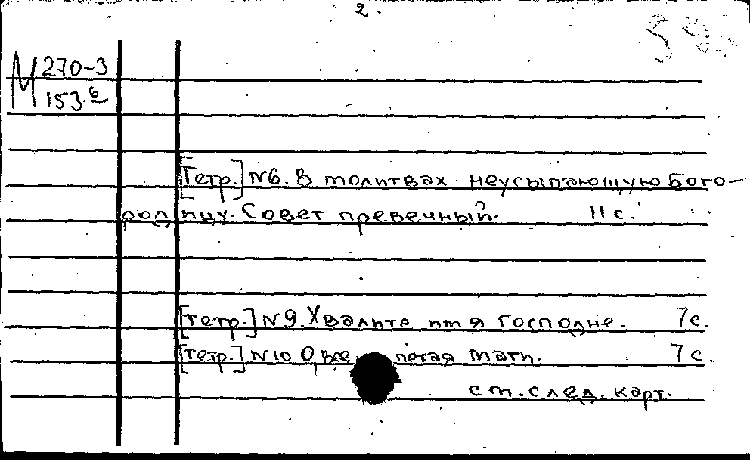 2.
М 270-3
153 б
[Тетр.] №6. В молитвах неусыпающую Бого-
родицу. Совет превечный. 11 с.
[тетр.] №9. Хвалите имя Господне. 7 с.
[тетр.] №10 О, все петая мати. 7 с
см. след. карт.